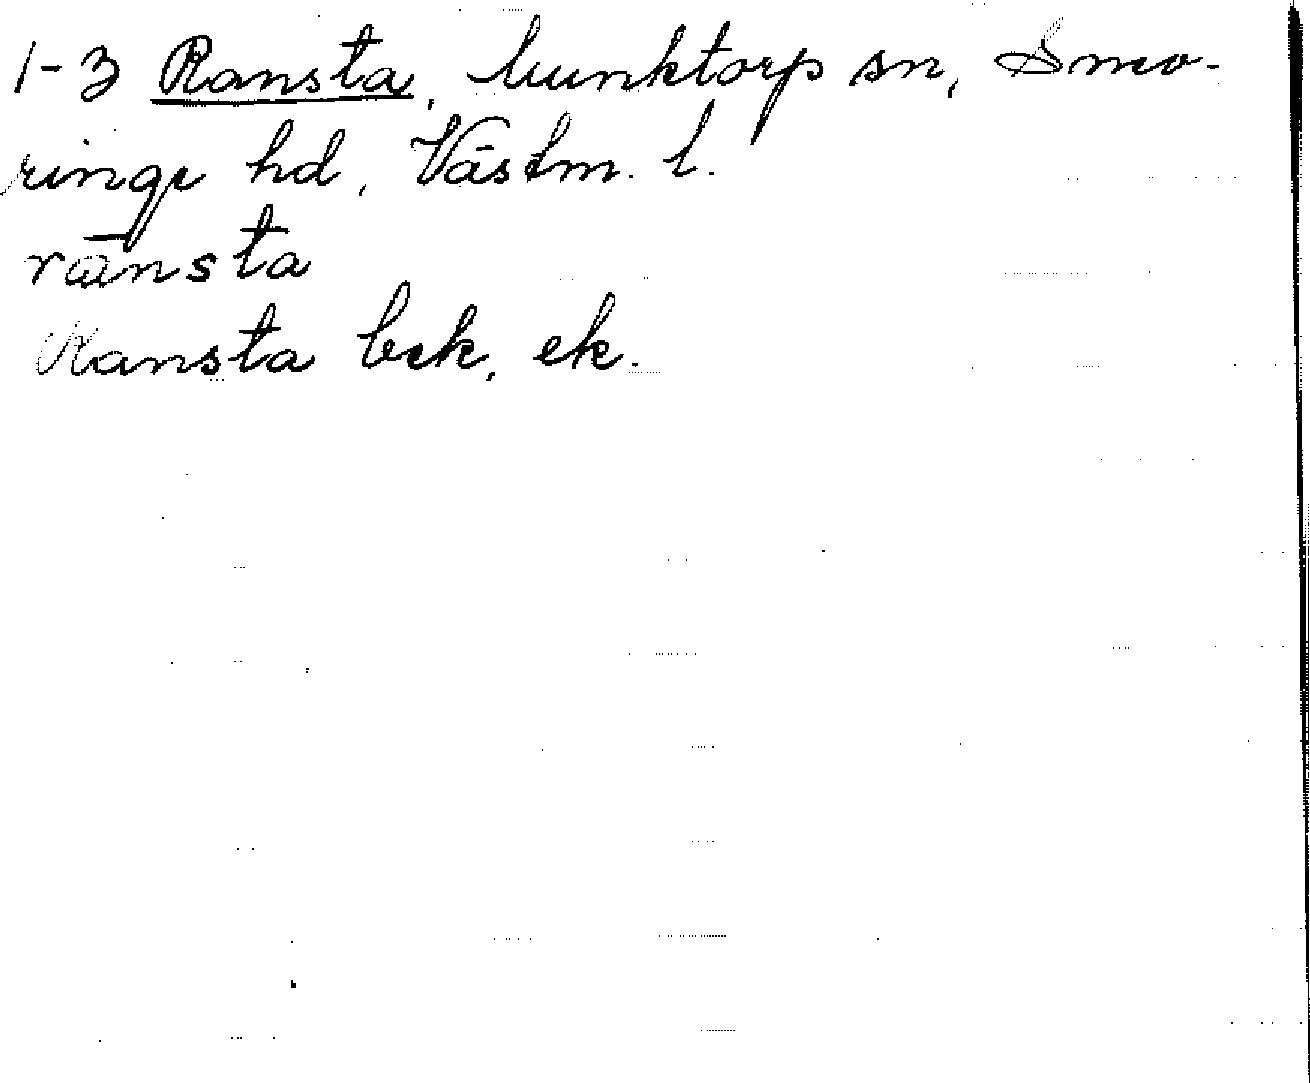 1-3 Ransta, Munktorp sn, Snev-
ringe hd, Västm. l.
rānsta
Ransta bek, ek.